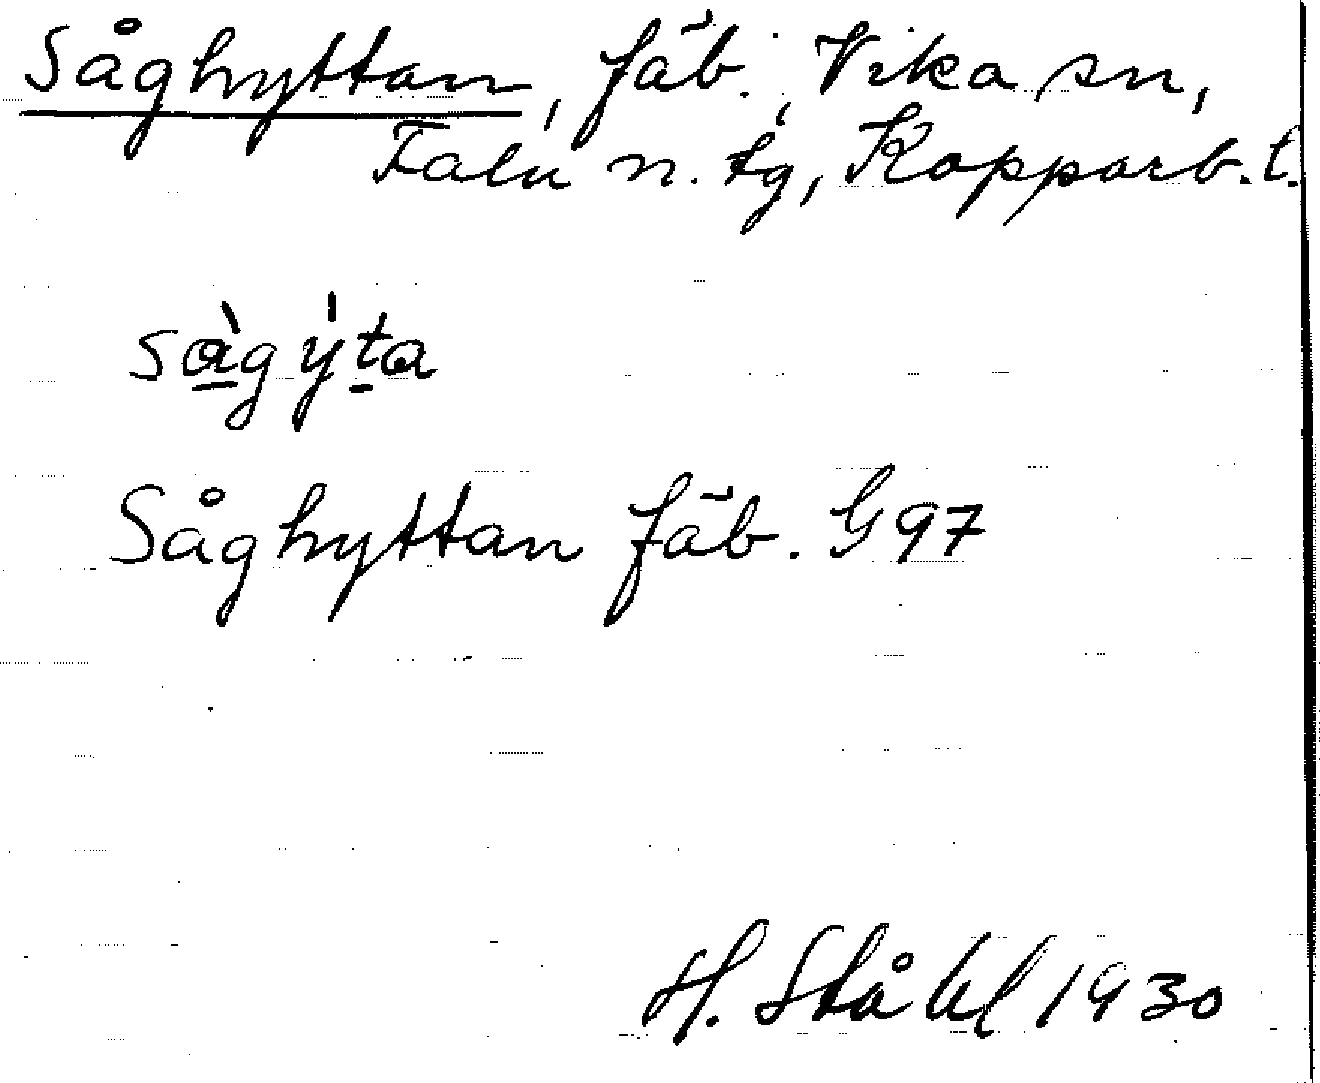 Såghyttan, fäb., Vika sn,
Falu n. tg, Kopparb. l.
sàgýta
Såghyttan fäb. G97
H. Ståhl 1930